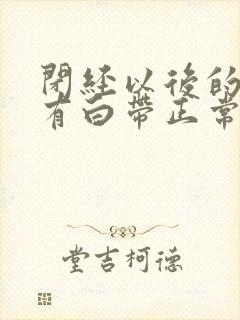 閉經以後的
有白帶正常
堂吉柯德